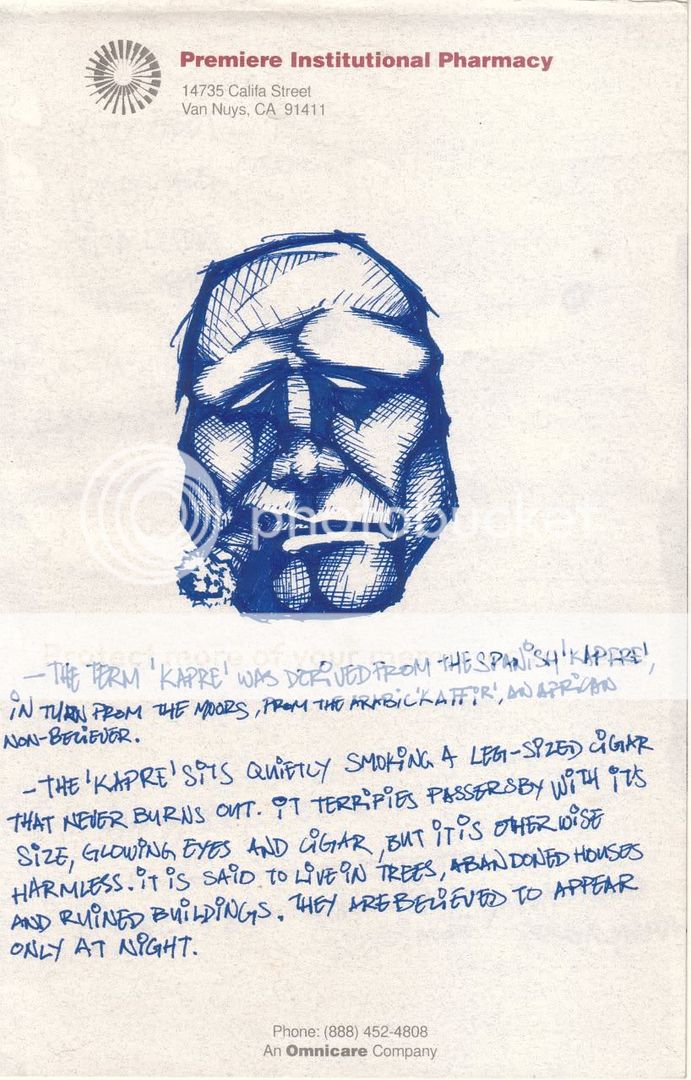 Premiere Institutional Pharmacy
14735 Califa Street
Van Nuys, CA 91411
photobucket
Protect more of your mem
- THE TERM 'KAPRE' WAS DERIVED FROM THE SPANISH 'KAPFRE',
IN TURN FROM THE MOORS, FROM THE ARABIC 'KAFFIR', AN AFRICAN
NON-BELIEVER.
- THE 'KAPRE' SITS QUIETLY SMOKING A LEG-SIZED CIGAR
THAT NEVER BURNS OUT. IT TERRIFIES PASSERSBY WITH IT'S
SIZE, GLOWING EYES AND CIGAR, BUT IT IS OTHERWISE
HARMLESS. IT IS SAID TO LIVE IN TREES, ABANDONED HOUSES
AND RUINED BUILDINGS. THEY ARE BELIEVED TO APPEAR
ONLY AT NIGHT.
Phone: (888) 452-4808
An Omnicare Company